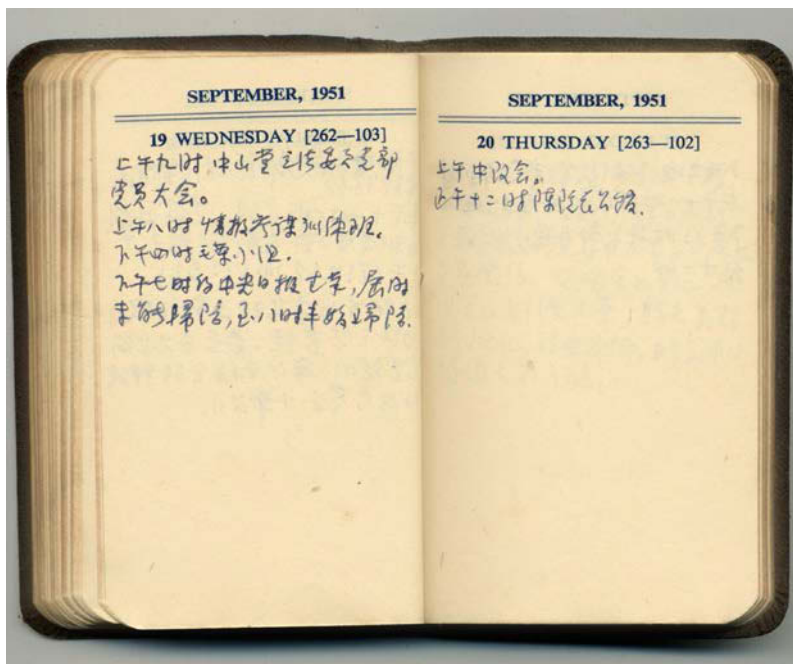 SEPTEMBER, 1951
19 WEDNESDAY [262—103]
上午九时 中山堂立法委员党部
党员大会。
上午八时 情报参谋训练班。
下午四时 小组.
下午七时 中央日报 , 届时
未能 归隐, 八时半始 归隐.
SEPTEMBER, 1951
20 THURSDAY [263—102]
上午中改会。
正午十二时陈院长公馆.